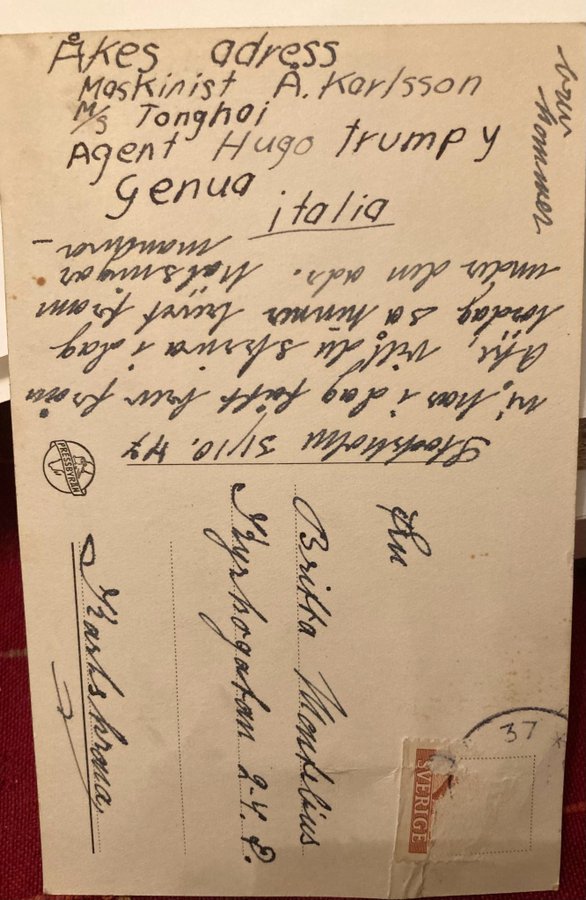 Åkes adress
Maskinist Å. Karlsson
M/S Tonghai
Agent Hugo trumpy
Genua
italia
brev kommer
Stockholm 31/10. 47
har i dag fått brev från
Åke, vill du skriva i dag
lördag så hinner brevet fram
under den adr. hälsningar
PRESSBYRÅN
Fru
Britta Montelius
Kyrkogatan 2-4.
Karlskrona.
SVERIGE
37